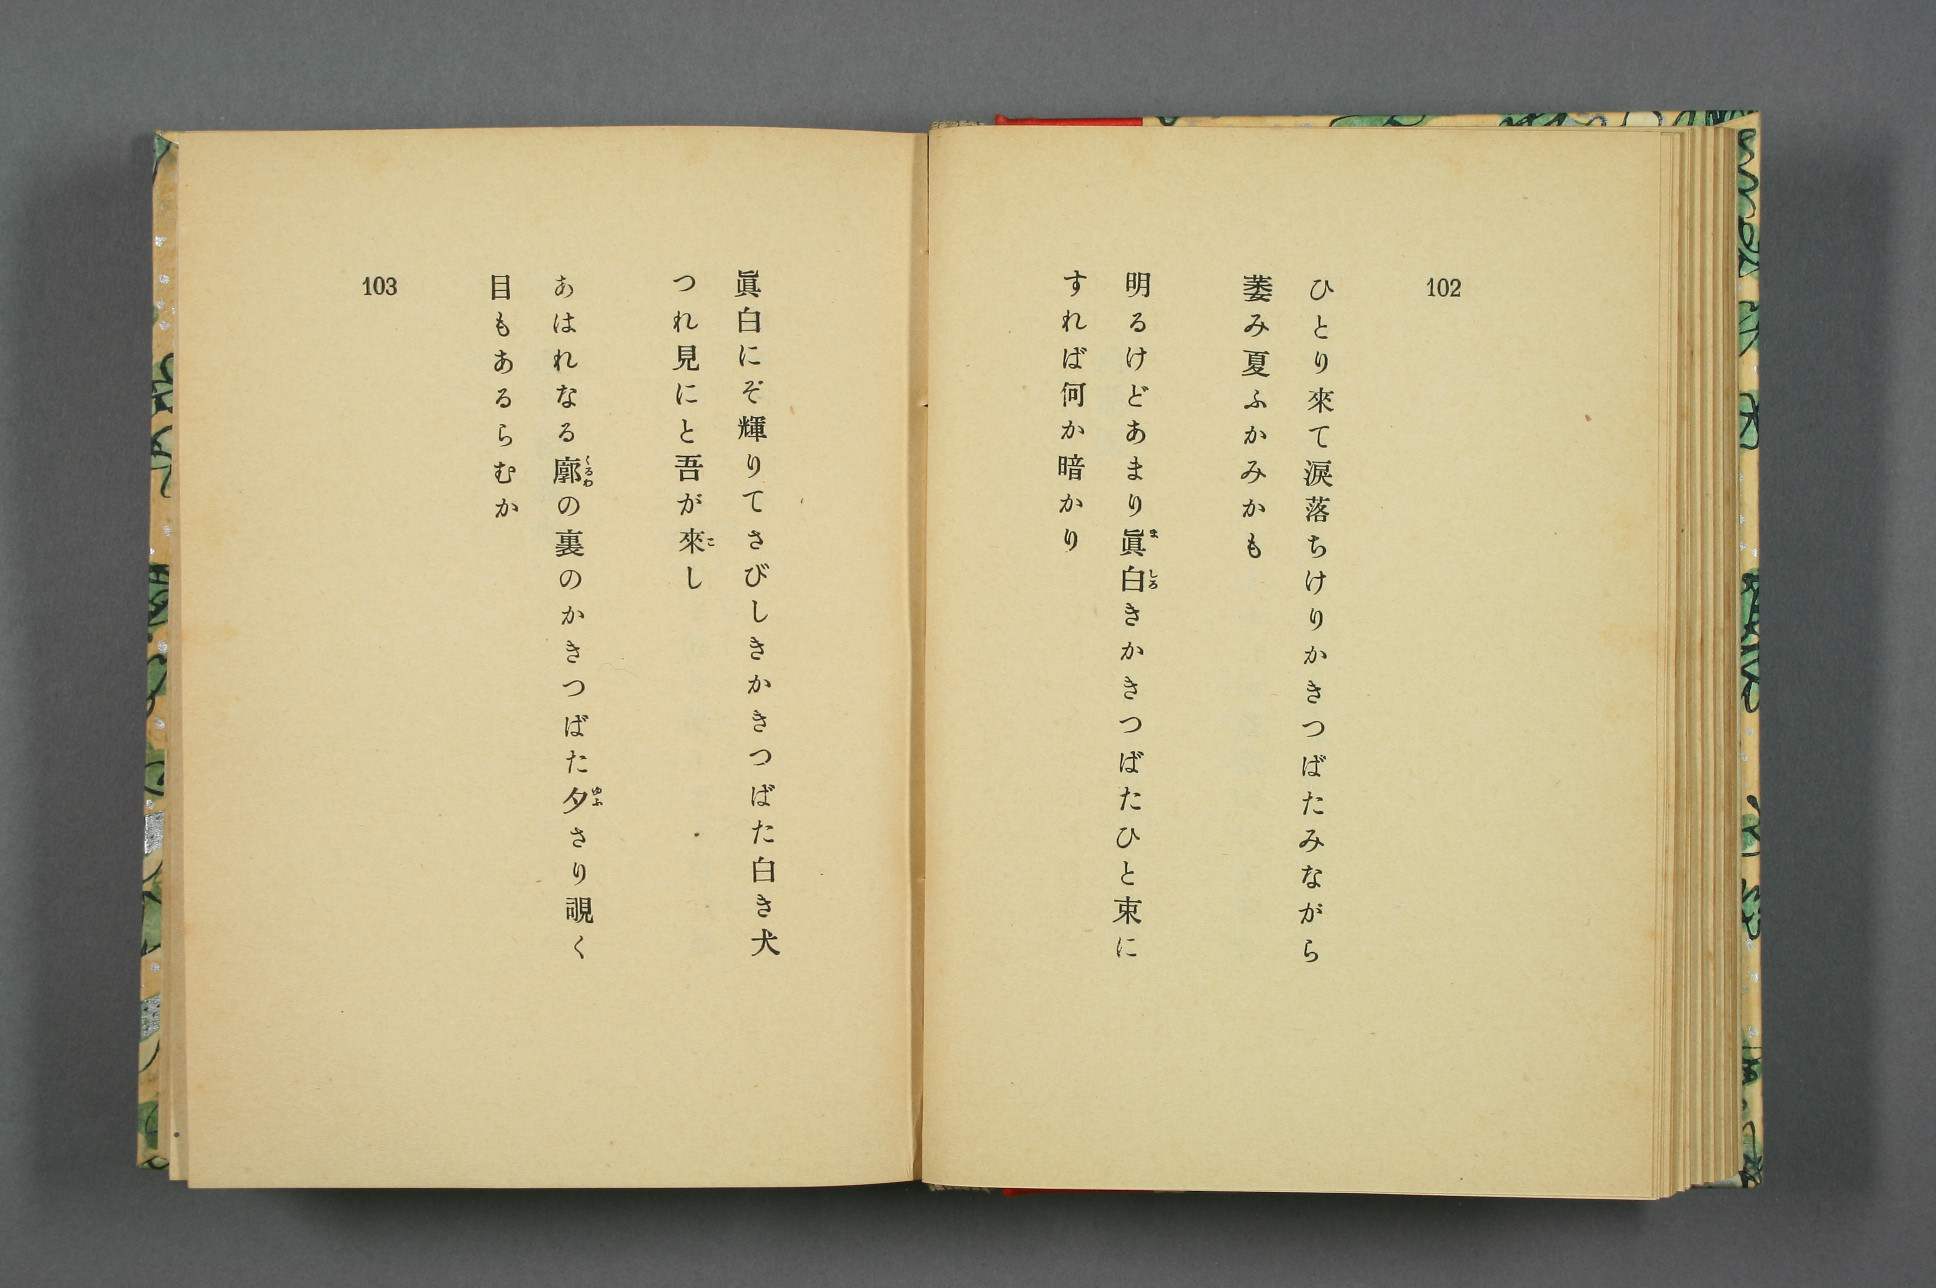 102
ひとり來て淚落ちけりかきつばたみながら
萎み夏ふかみかも
明るけどあまり眞白きかきつばたひと束に
すれば何か暗かり
眞白にぞ輝りてさびしきかきつばた白き犬
つれ見にと吾が來し
あはれなる廓の裏のかきつばた夕さり覗く
目もあるらむか
103